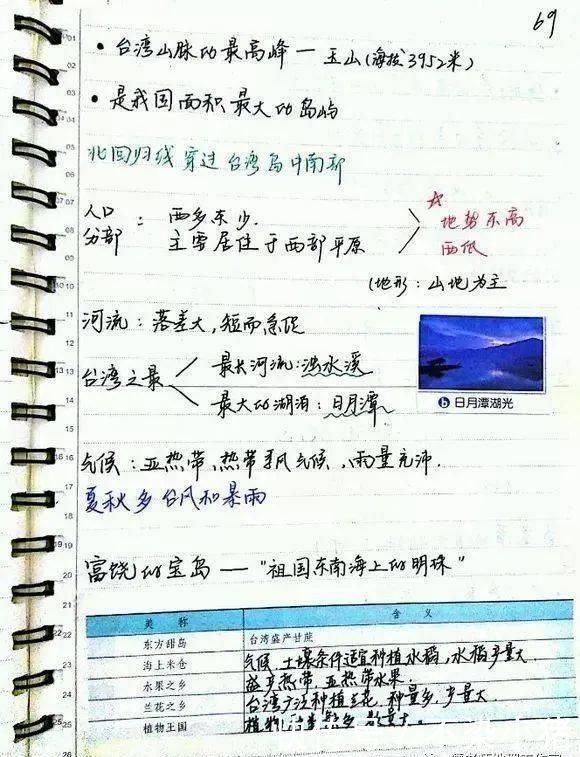 69
• 台湾山脉的最高峰 — 玉山(海拔3952米)
• 是我国面积最大的岛屿
北回归线穿过台湾岛中南部
人口分部 : 西多东少.
主要居住于西部平原
☆ 地势东高西低
(地形: 山地为主
河流: 落差大,短而急促
台湾之最
最长河流: 浊水溪
最大的湖泊: 日月潭
b 日月潭湖光
气候: 亚热带,热带季风气候,雨量充沛.
夏秋多台风和暴雨
富饶的宝岛 —— "祖国东南海上的明珠"
美称 含义
东方甜岛 台湾盛产甘蔗
海上米仓 气候、土壤条件适宜种植水稻,水稻产量大
水果之乡 盛产热带、亚热带水果.
兰花之乡 台湾广泛种植兰花,种量多,产量大
植物王国 植物